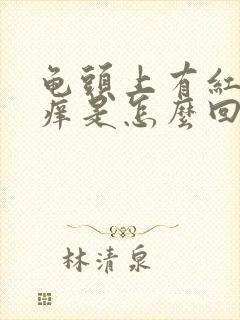 龟頭上有紅
痒是怎麼回
林清泉